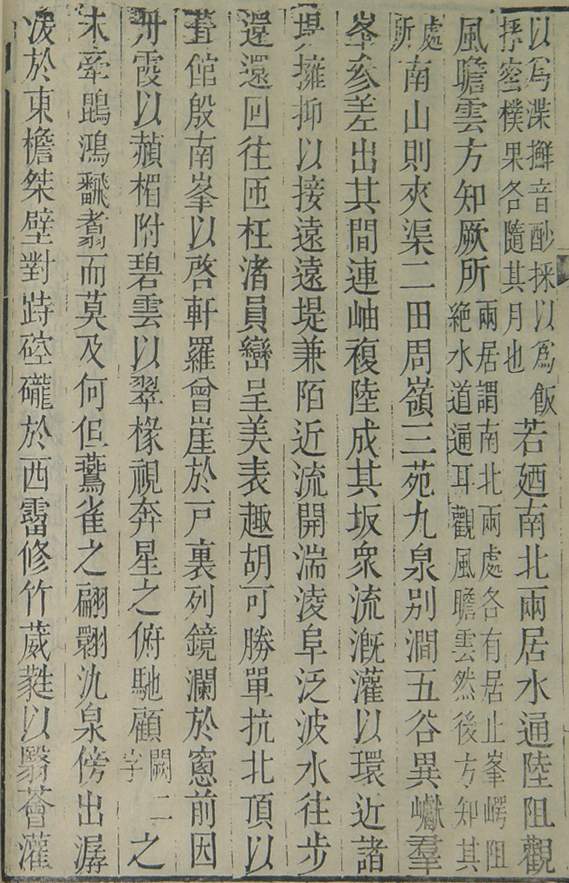 以爲渫擗音酚採以爲飯
採蜜樸果各隨其月也
若廼南北兩居水通陸阻觀
風瞻雲方知厥所
兩居謂南北兩處各有居止峯崿阻
絕水道通耳觀風瞻雲然後方知其
處
所
南山則夾渠二田周嶺三苑九泉別澗五谷異巘羣
峯參差出其間連岫複陸成其坂衆流溉灌以環近諸
堤擁抑以接遠遠堤兼陌近流開湍淩阜泛波水往步
還還回往匝枉渚員巒呈美表趣胡可勝單抗北頂以
葺館殷南峯以啓軒羅曾崖於戶裏列鏡瀾於窻前因
丹霞以赬楣附碧雲以翠椽視奔星之俯馳顧
闕二
字
之
未牽鵾鴻翻翥而莫及何但鷰雀之翩翾氿泉傍出潺
湲於東檐桀壁對跱硿礲於西霤修竹葳蕤以翳薈灌